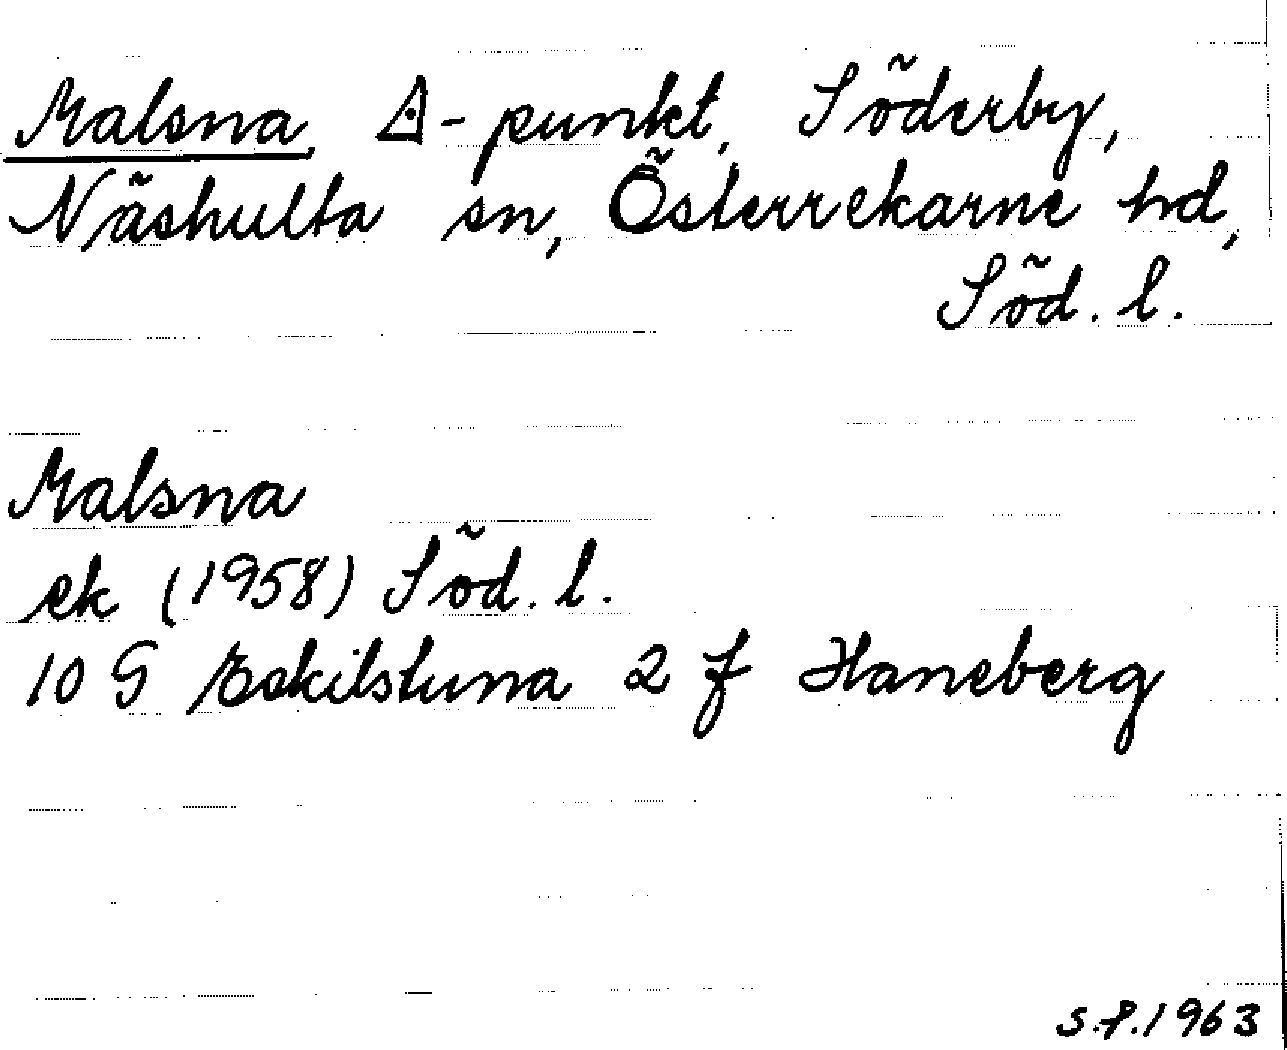 Malsna, △-punkt, Söderby,
Näshulta sn, Österrekarne hd,
Söd. l.
Malsna
ek (1958) Söd. l.
10 G Eskilstuna 2 f Haneberg
S.P. 1963